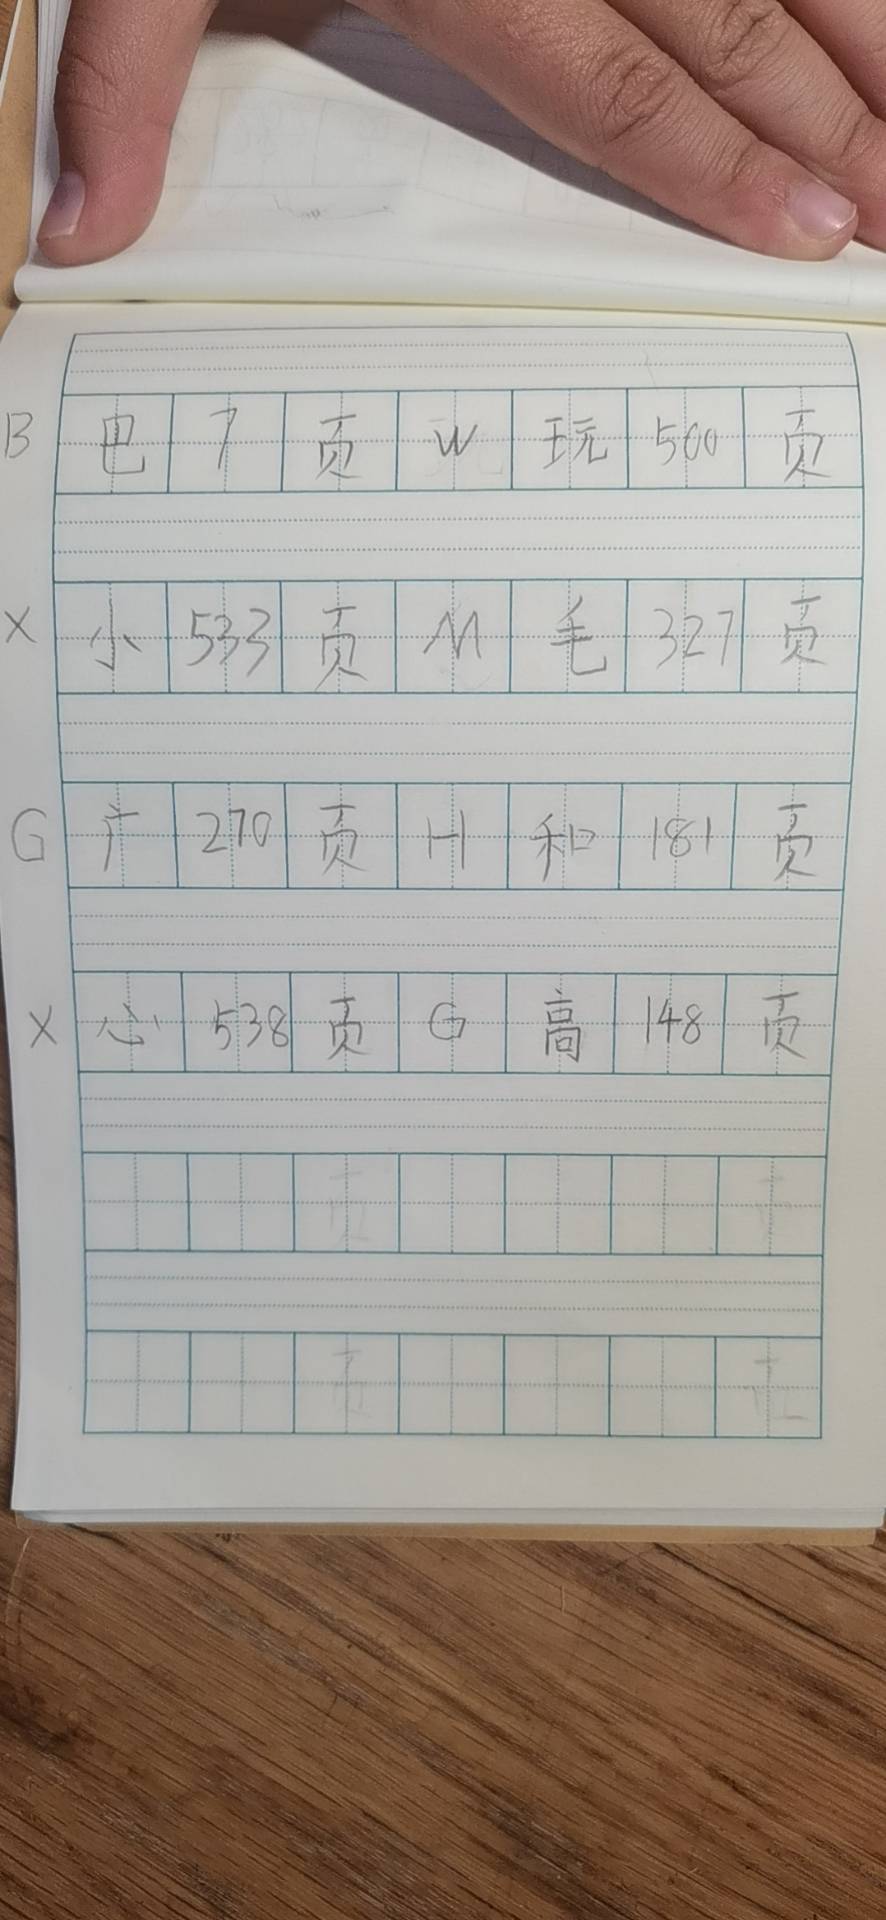 B 巴 7 页 W 玩 500 页
X 小 533 页 M 毛 327 页
G 广 270 页 H 和 181 页
X 心 538 页 G 高 148 页